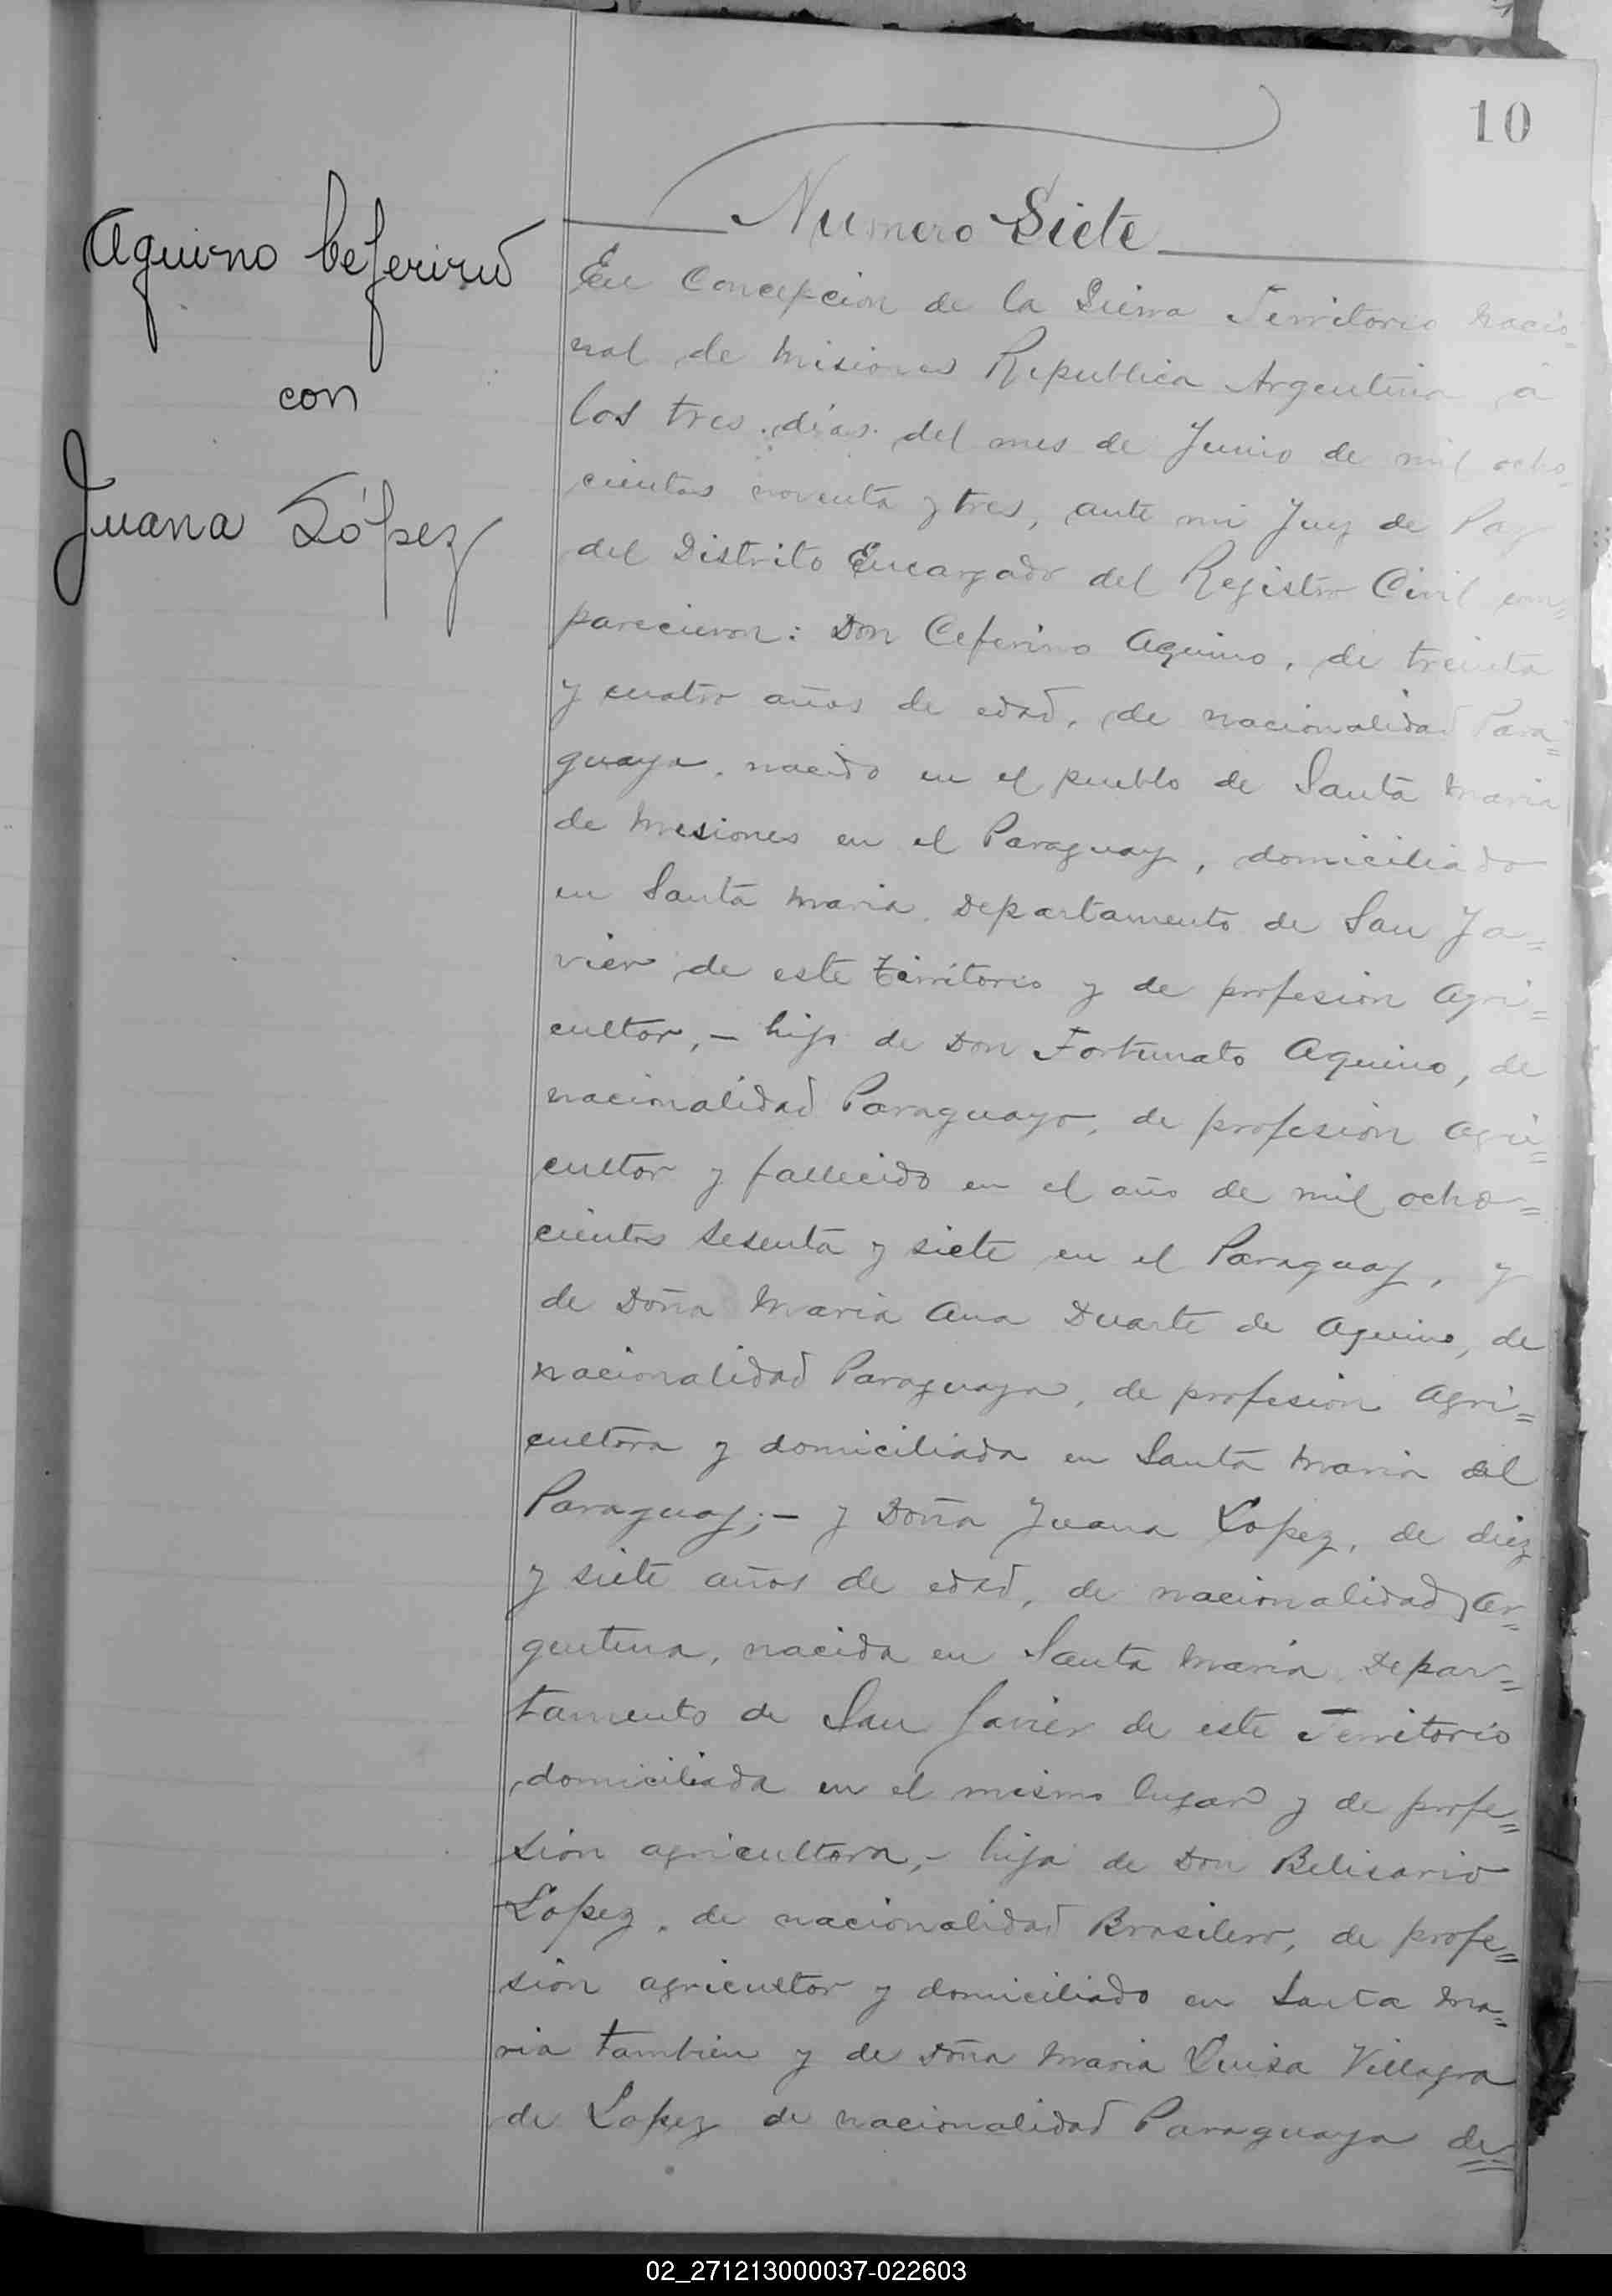 10
Aquino Ceferino
con
Juana López
Numero Siete
En Concepcion de la Sierra Territorio Nacio=
nal de Misiones Republica Argentina á
los tres dias del mes de Junio de mil ocho
cientos noventa y tres, ante mi Juez de Paz
del Distrito Encargado del Registro Civil com=
parecieron: Don Ceferino Aquino, de treinta
y cuatro años de edad, de nacionalidad Para=
guaya, nacido en el pueblo de Santa Maria
de Misiones en el Paraguay, domiciliado
en Santa Maria Departamento de San Ja=
vier de este territorio y de profesion Agri=
cultor,- hijo de Don Fortunato Aquino, de
nacionalidad Paraguayo, de profesion Agri=
cultor y fallecido en el año de mil ocho=
cientos sesenta y siete en el Paraguay, y
de Doña Maria Ana Duarte de Aquino, de
nacionalidad Paraguaya, de profesion Agri=
cultora y domiciliada en Santa Maria del
Paraguay;- y Doña Juana Lopez, de diez
y siete años de edad, de nacionalidad Ar=
gentina, nacida en Santa Maria Depar=
tamento de San Javier de este Territorio
domiciliada en el mismo lugar y de profe=
sion agricultora,- hija de Don Belisario
Lopez, de nacionalidad Brasilero, de profe=
sion agricultor y domiciliado en Santa Ma=
ria tambien y de Doña Maria Luisa Villagra
de Lopez de nacionalidad Paraguaya de
02_271213000037-022603